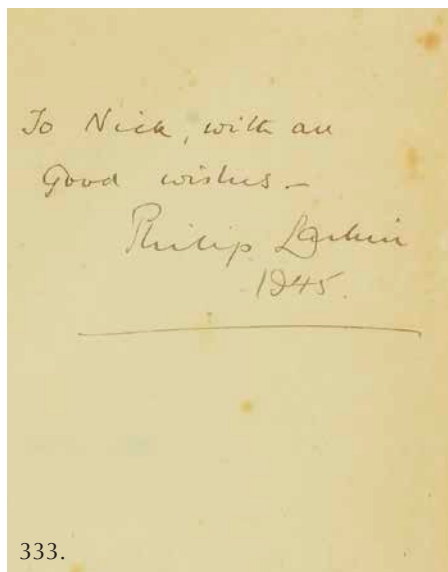 To Nick, with all
Good wishes –
Philip Larkin
1945.
333.